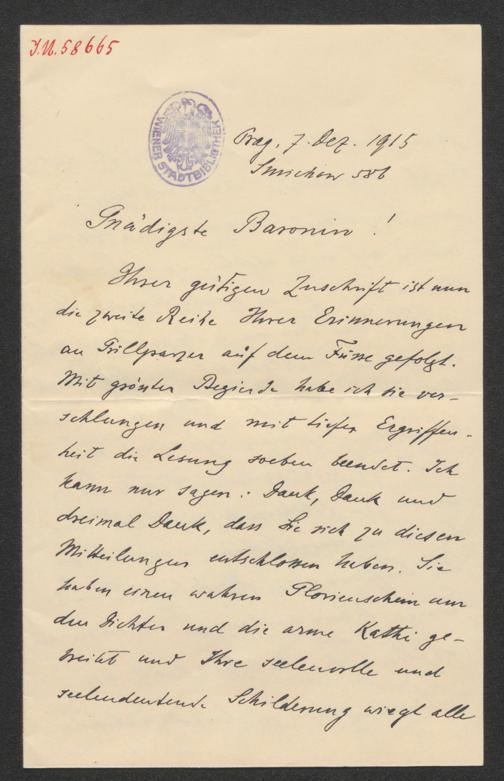 J.N. 58665
WIENER STADTBIBLIOTHEK
Prag, 7. Dez. 1915
Smichow 586
Gnädigste Baronin!
Ihrer gütigen Zuschrift ist nun
die zweite Reihe Ihrer Erinnerungen
an Grillparzer auf dem Fusse gefolgt.
Mit grösster Begierde habe ich sie ver-
schlungen und mit tiefer Ergriffen-
heit die Lesung soeben beendet. Ich
kann nur sagen: Dank, Dank und
dreimal Dank, dass Sie sich zu diesen
Mitteilungen entschlossen haben. Sie
haben einen wahren Glorienschein um
den Dichter und die arme Kathi ge-
breitet und Ihre seelenvolle und
seelendeutende Schilderung wiegt alle